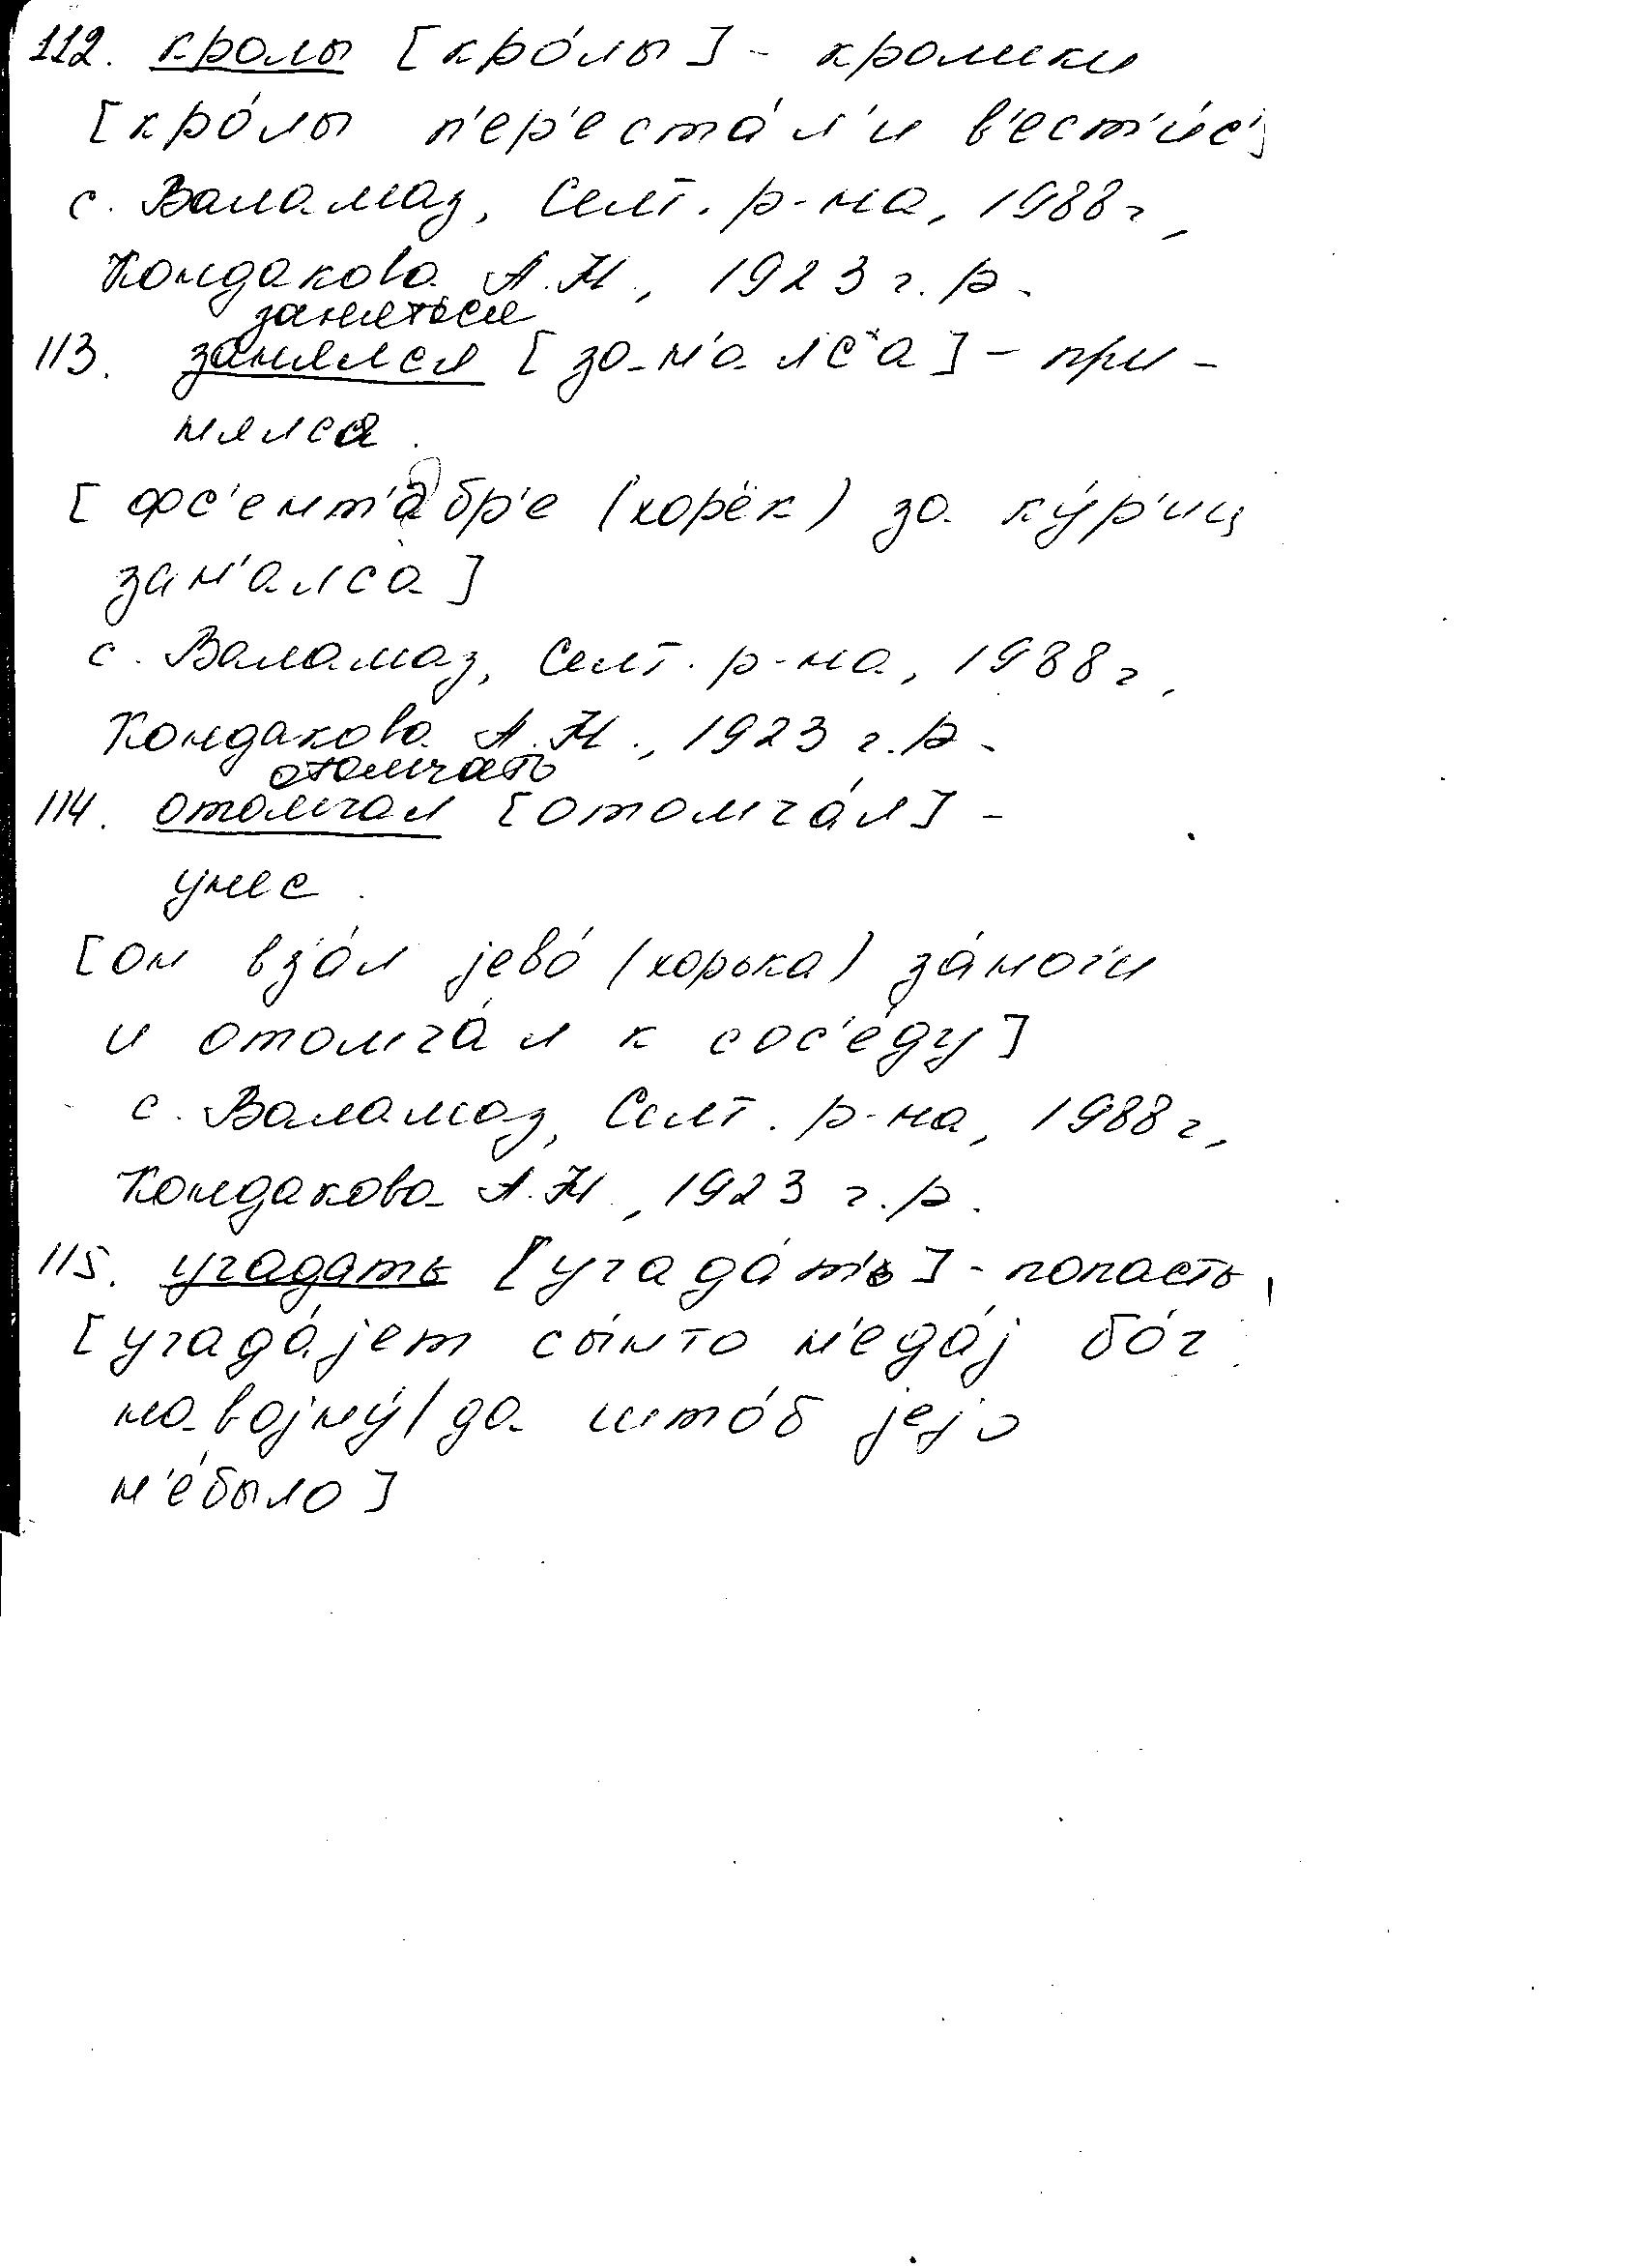 112. кролы [кро́лы] - кролики
[кро́лы п'ер'еста́л'и в'ест'и́с']
с. Валамаз, Селт. р-на, 1988 г,
Кондакова А.Н., 1923 г.р.
заняться
113. занялся [за-н'а-лс'а] - при-
нялся.
[фс'ент'абр'е (хорёк) за ку́р'иц
зан'алса]
с. Валамаз, Селт. р-на, 1988 г,
Кондакова А.Н., 1923 г.р.
отомчать
114. отомчал [отомча́л] -
унес.
[он вз'а́л jево́ (хорька) за́ног'и
и отомча́л к сос'е́ду]
с. Валамаз, Селт. р-на, 1988 г,
Кондакова А.Н., 1923 г.р.
115. угадать [угада́т'] - попасть,
[угада́jет сы́нто н'еда́j бо́г
на-воjну́/да штоб jеjо
н'е́было]